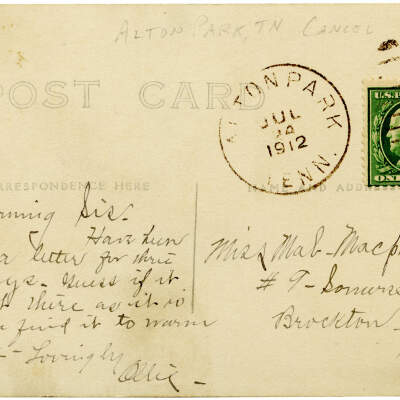 ALTON PARK, TN CANCEL
POST CARD
ALTON PARK
JUL
24
1912
TENN.
U.S. P
ON
CORRESPONDENCE HERE
NAME AND ADDRES
rning Sis.
Have been
a letter for three
ys. Guess if it
there as it is
find it to warm
Lovingly
Ollie
Miss Mab- Macp
# 9- Somerse
Brockton